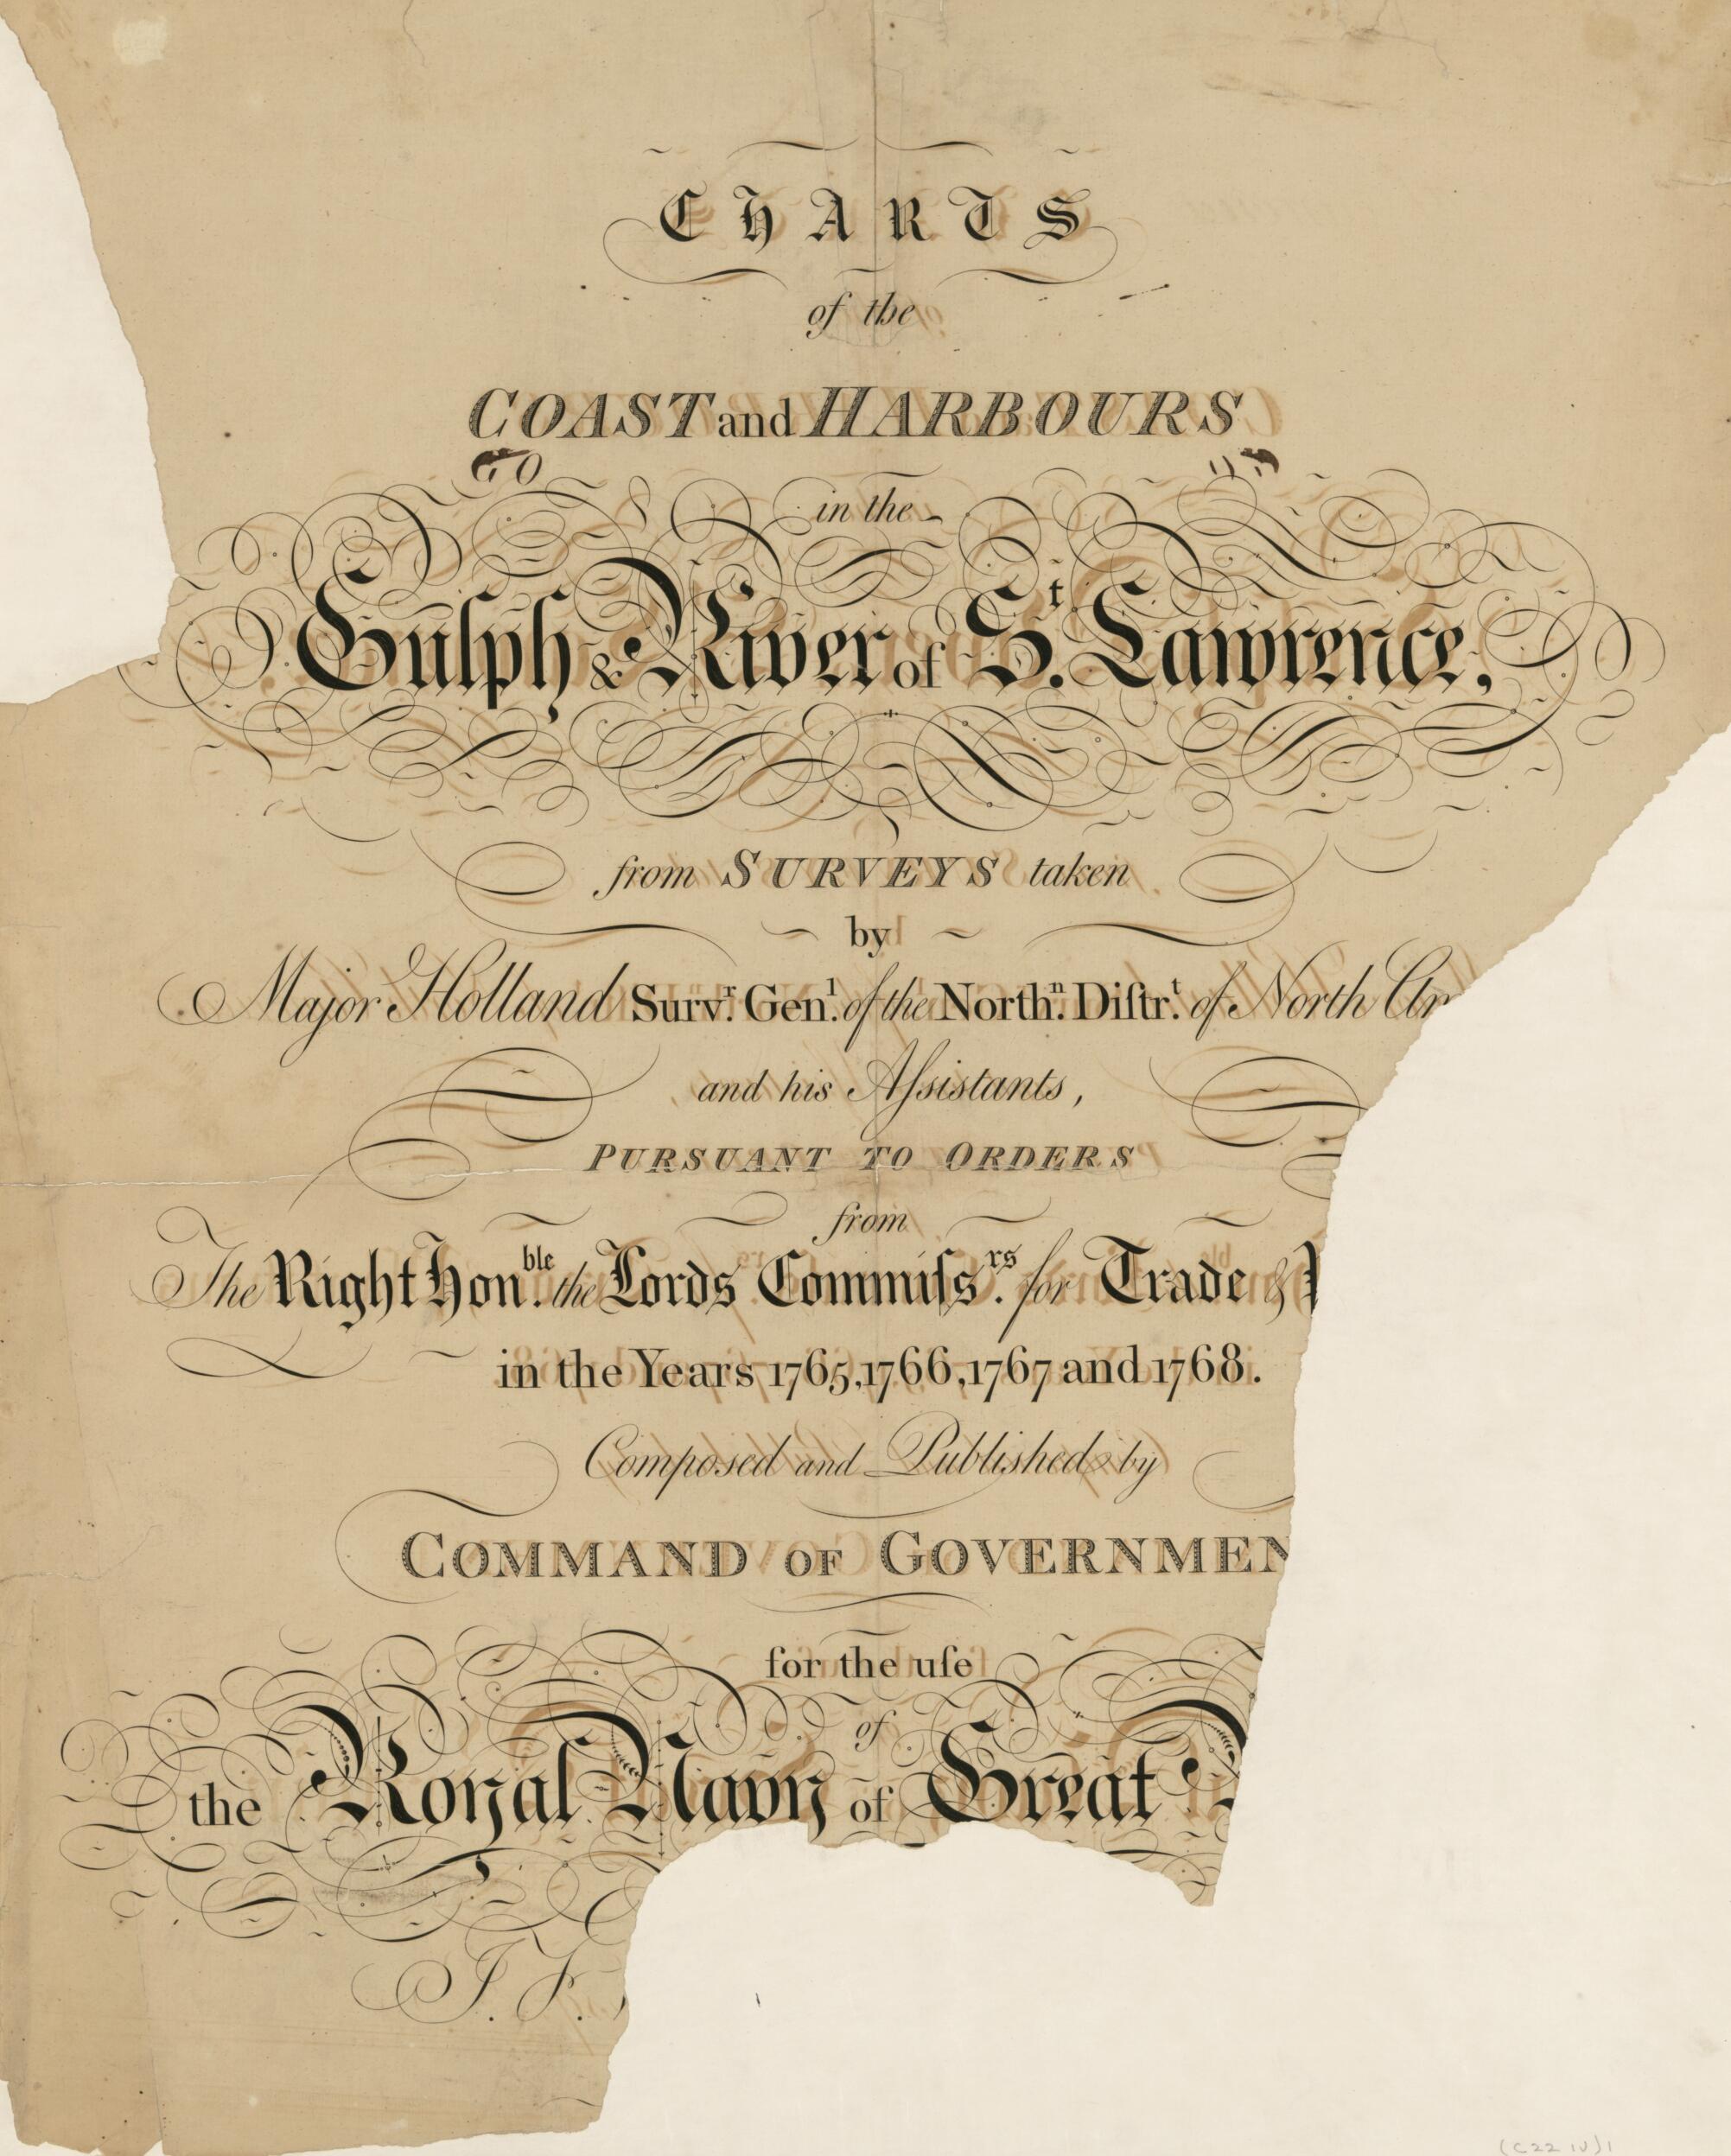 CHARTS
of the
COAST and HARBOURS
in the
Gulph & River of St. Lawrence,
from SURVEYS taken
by
Major Holland Survr. Genl. of the Northn. Diſtrt. of North
and his Aſsistants,
PURSUANT TO ORDERS
from
The Right Honble. the Lords Commiſsrs. for Trade &
in the Years 1765, 1766, 1767 and 1768.
Composed and Published by
COMMAND OF GOVERNMEN
for the uſe
of
the Royal Navy of Great
J. F.